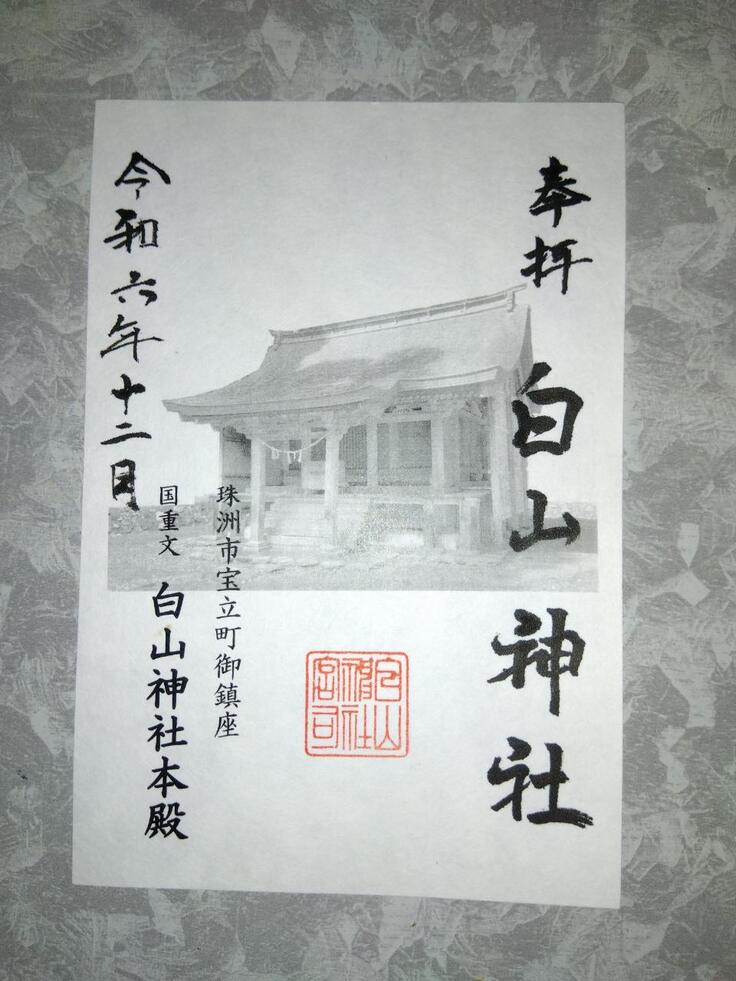 奉拝
白山神社
白山神社宮司
珠洲市宝立町御鎮座
国重文 白山神社本殿
令和六年十二月